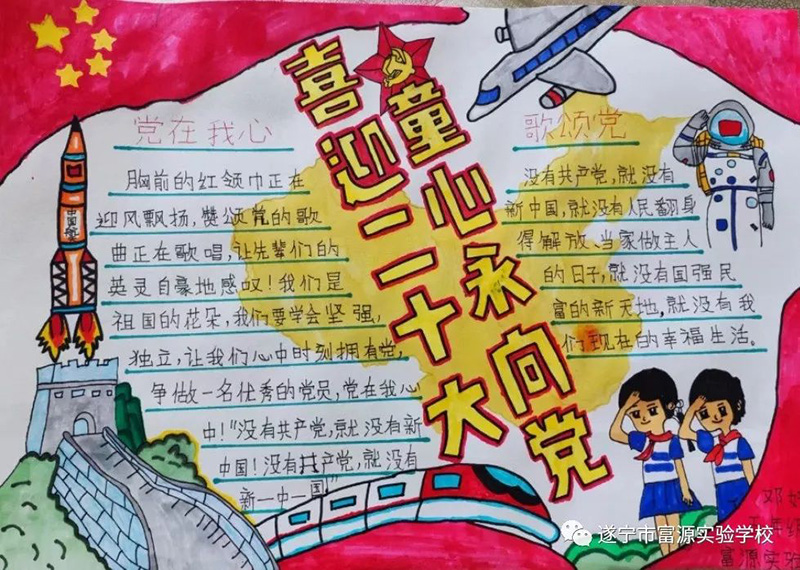 喜迎二十大
童心永向党
党在我心
胸前的红领巾正在
迎风飘扬,赞颂党的歌
曲正在歌唱,让先辈们的
英灵自豪地感叹!我们是
祖国的花朵,我们要学会坚强,
独立,让我们心中时刻拥有党,
争做一名优秀的党员,党在我心
中!“没有共产党,就没有新
中国!没有共产党,就没有
新一中一国”
歌颂党
没有共产党,就没有
新中国,就没有人民翻身
得解放、当家做主人
的日子,就没有国强民
富的新天地,就没有我
们现在的幸福生活。
中国
邓
富源实验
遂宁市富源实验学校